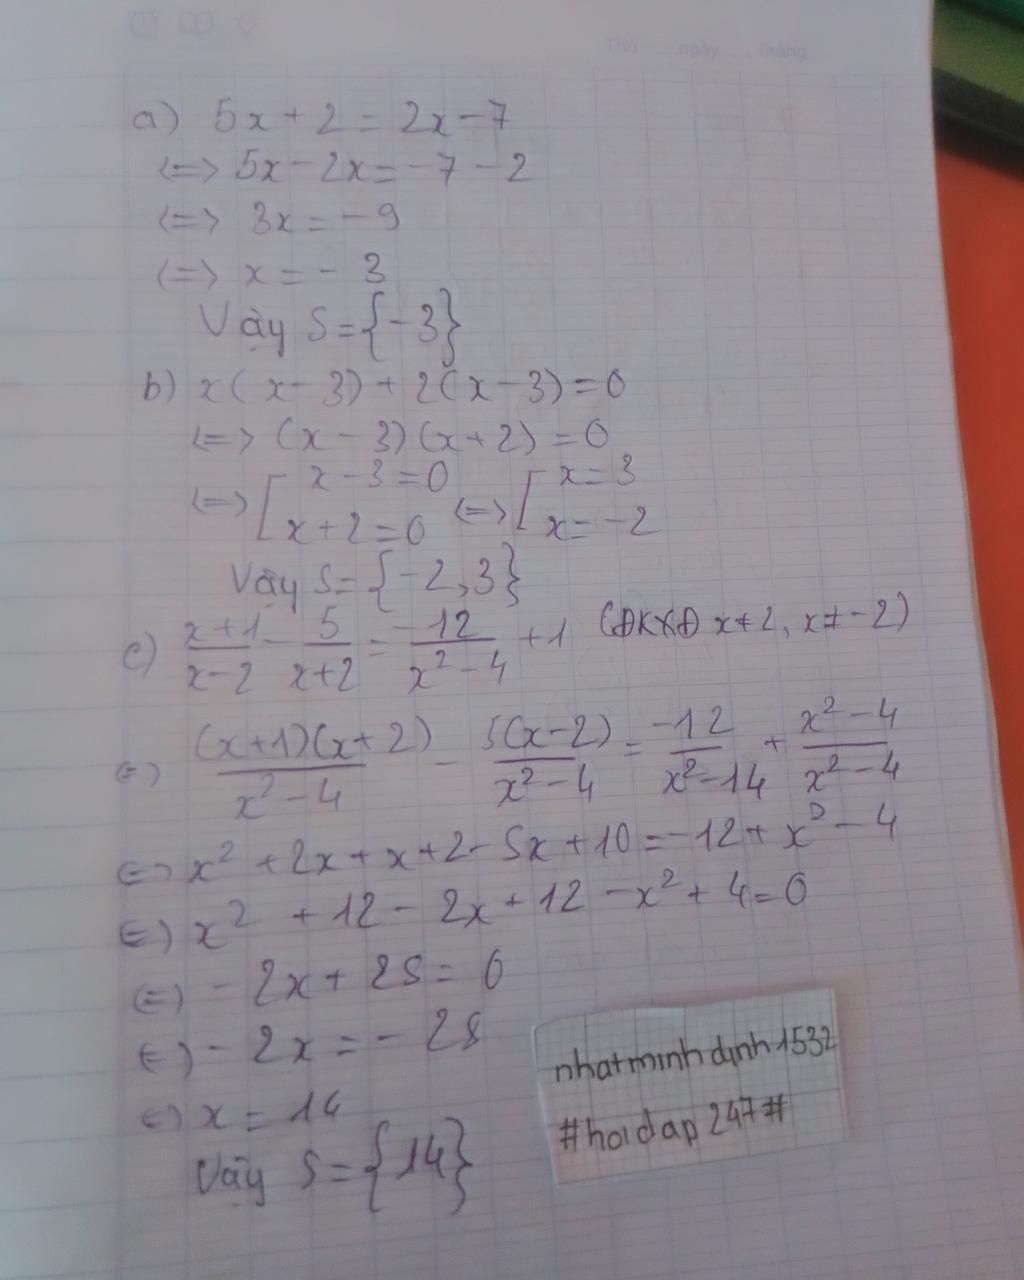 Thứ ngày tháng
a) 5x + 2 = 2x - 7
<=> 5x - 2x = -7 - 2
<=> 3x = -9
<=> x = -3
Vậy S = {-3}
b) x(x - 3) + 2(x - 3) = 0
<=> (x - 3)(x + 2) = 0
<=> [ x - 3 = 0 <=> [ x = 3
x + 2 = 0 x = -2
Vậy S = {-2, 3}
c) (x+1)/(x-2) - 5/(x+2) = -12/(x² - 4) + 1 (ĐKXĐ x ≠ 2, x ≠ -2)
<=> (x+1)(x+2)/(x² - 4) - 5(x-2)/(x² - 4) = -12/(x² - 14) + (x² - 4)/(x² - 4)
<=> x² + 2x + x + 2 - 5x + 10 = -12 + x² - 4
<=> x² + 12 - 2x + 12 - x² + 4 = 0
<=> -2x + 28 = 0
<=> -2x = -28
<=> x = 14
Vậy S = {14}
nhatminhdinh1532
#hoidap247#